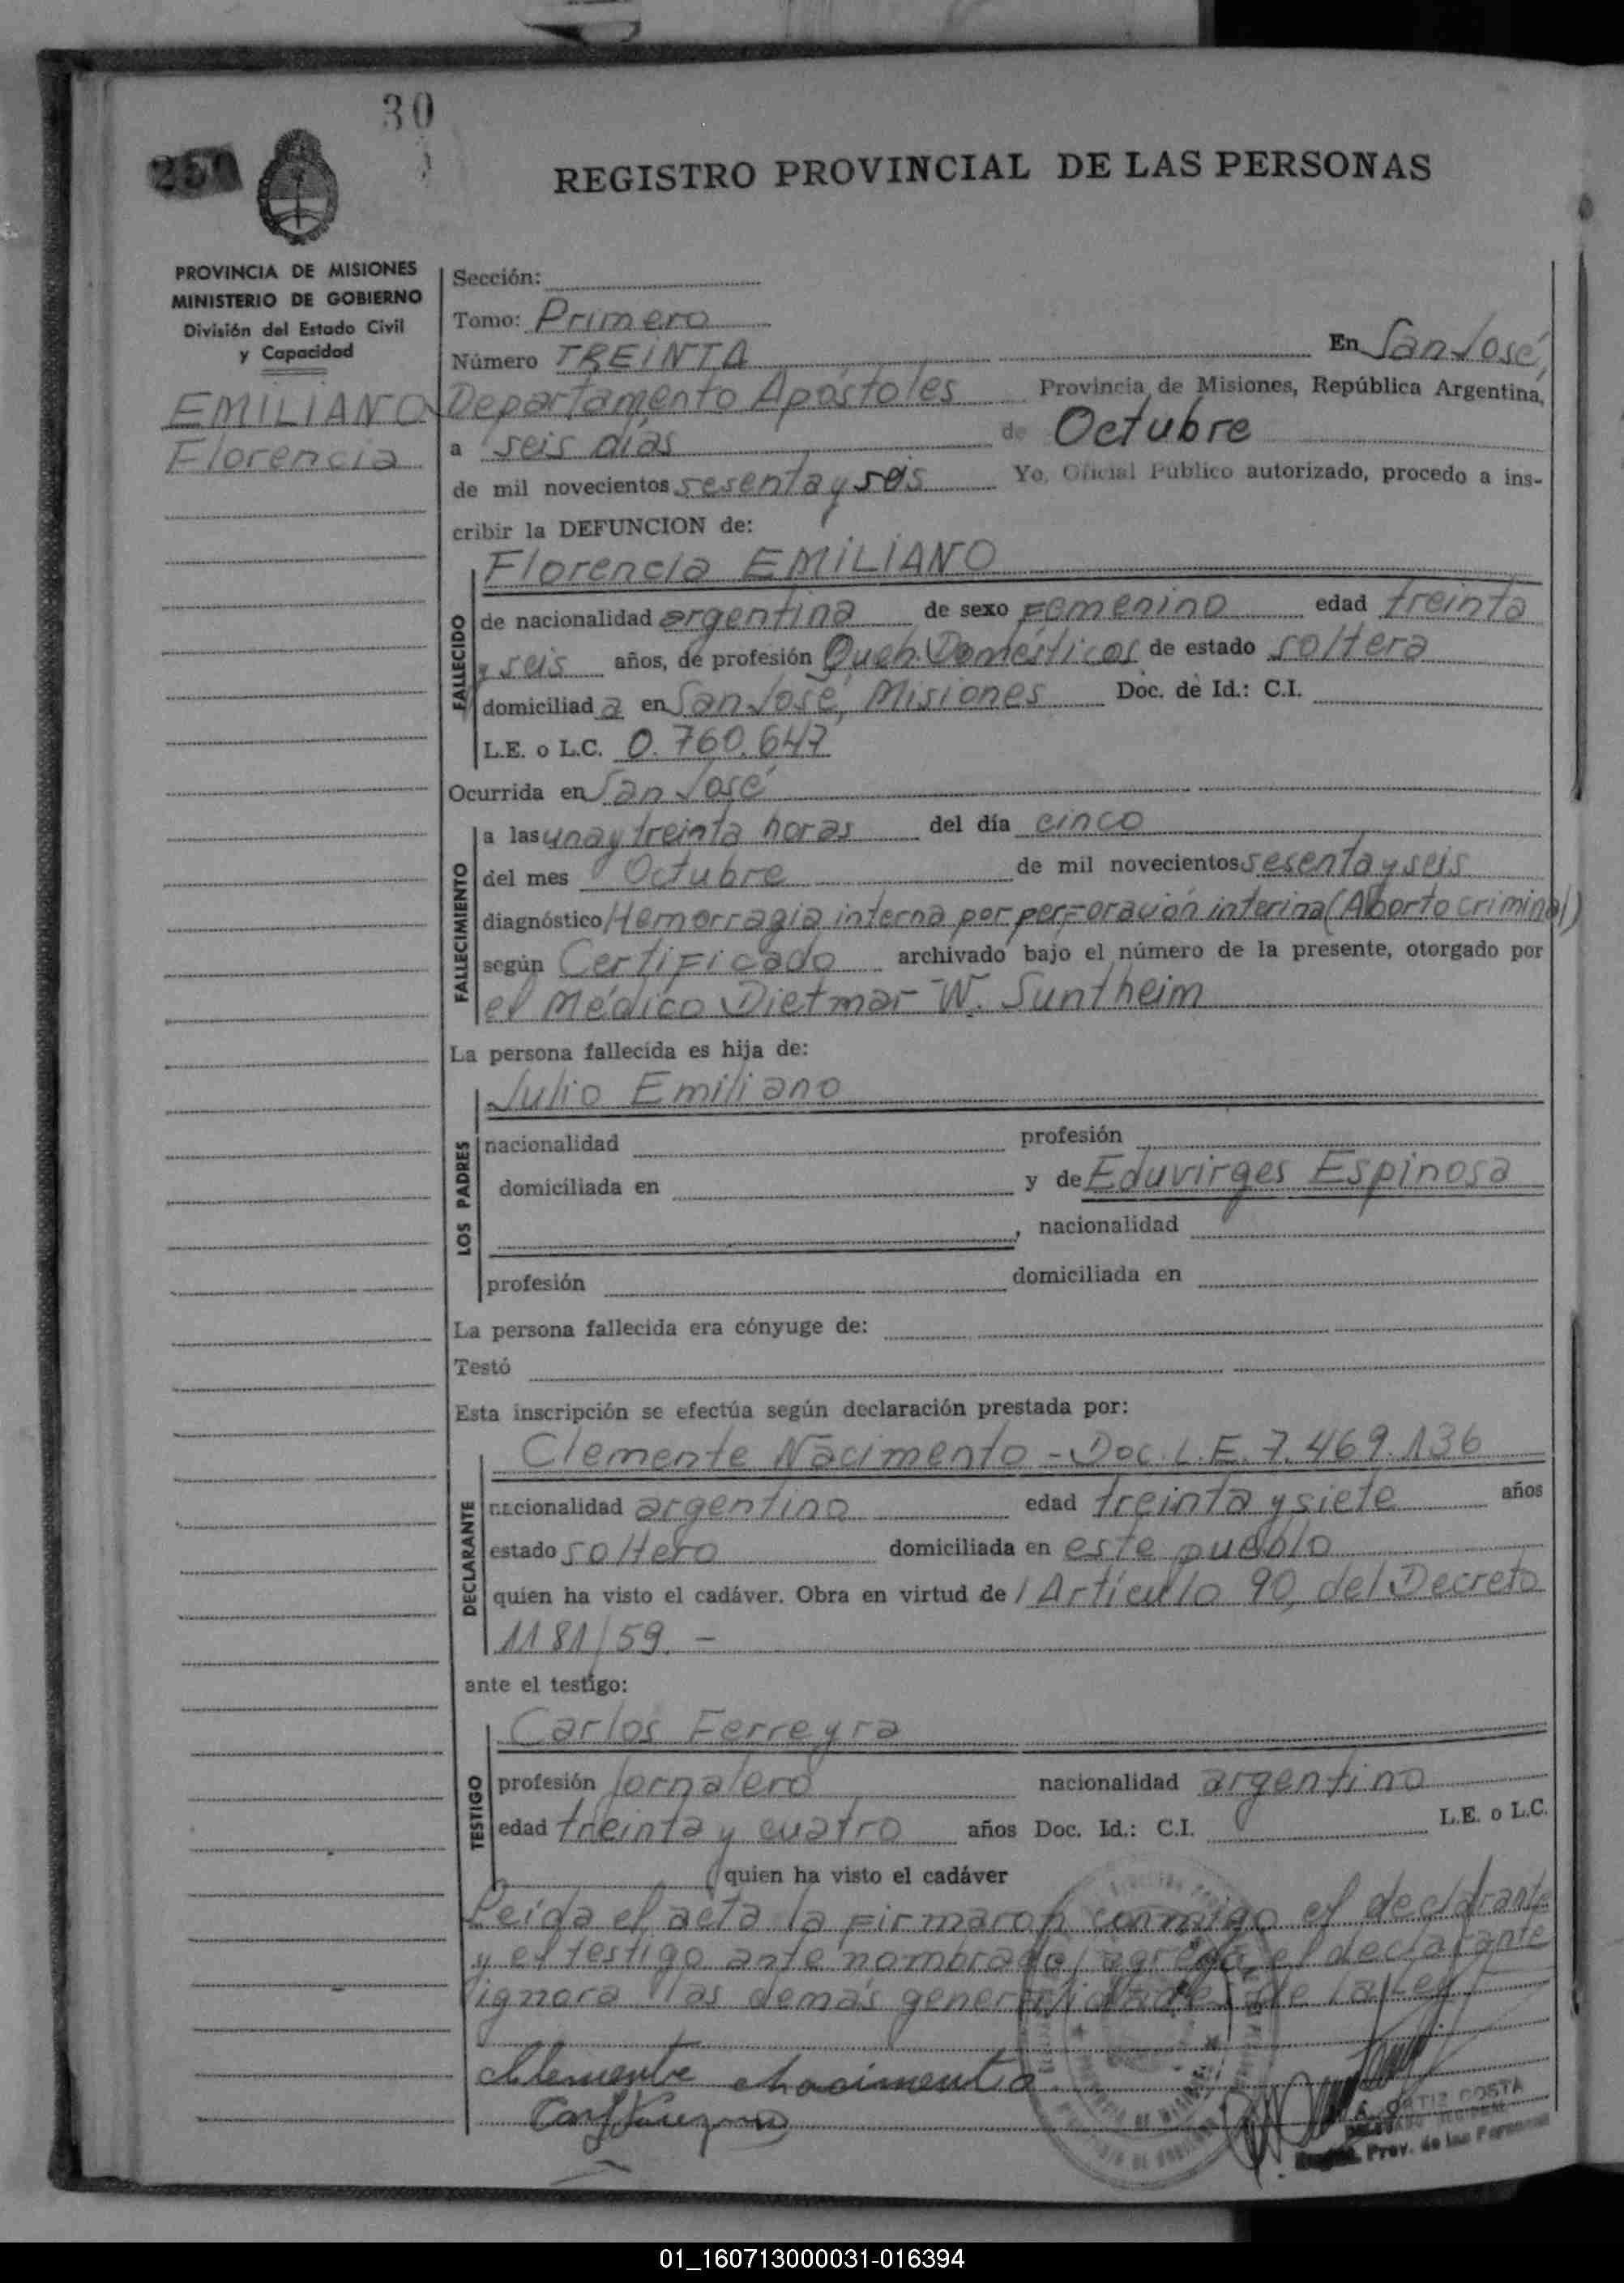 30
REGISTRO PROVINCIAL DE LAS PERSONAS
PROVINCIA DE MISIONES
MINISTERIO DE GOBIERNO
División del Estado Civil
y Capacidad
EMILIANO
Florencia
Sección:
Tomo: Primero
Número TREINTA En San José,
Departamento Apóstoles Provincia de Misiones, República Argentina,
a seis días de Octubre
de mil novecientos sesenta y seis Yo, Oficial Público autorizado, procedo a ins-
cribir la DEFUNCION de:
Florencia EMILIANO
FALLECIDO
de nacionalidad argentina de sexo Femenino edad treinta
y seis años, de profesión Queh. Domésticos de estado soltera
domiciliad a en San José, Misiones Doc. de Id.: C.I.
L.E. o L.C. 0.760.647
Ocurrida en San José
FALLECIMIENTO
a las una y treinta horas del día cinco
del mes Octubre de mil novecientos sesenta y seis
diagnóstico Hemorragia interna por perforación interina (Aborto criminal)
según Certificado archivado bajo el número de la presente, otorgado por
el Médico Dietmar W. Suntheim
La persona fallecida es hija de:
LOS PADRES
Julio Emiliano
nacionalidad profesión
domiciliada en y de Eduvirges Espinosa
, nacionalidad
profesión domiciliada en
La persona fallecida era cónyuge de:
Testó
Esta inscripción se efectúa según declaración prestada por:
DECLARANTE
Clemente Nacimento - Doc. L.E. 7.469.136
nacionalidad argentino edad treinta y siete años
estado soltero domiciliada en este pueblo
quien ha visto el cadáver. Obra en virtud de l Artículo 90, del Decreto
1181/59.-
ante el testigo:
TESTIGO
Carlos Ferreyra
profesión Jornalero nacionalidad argentino
edad treinta y cuatro años Doc. Id.: C.I. L.E. o L.C.
quien ha visto el cadáver
Leída el acta la firmaron conmigo el declarante
y el testigo ante nombrado, agrega el declarante
ignora las demás generalidades de la Ley
Clemente Nacimento
ORTIZ COSTA
Prov. de las Personas
01_160713000031-016394